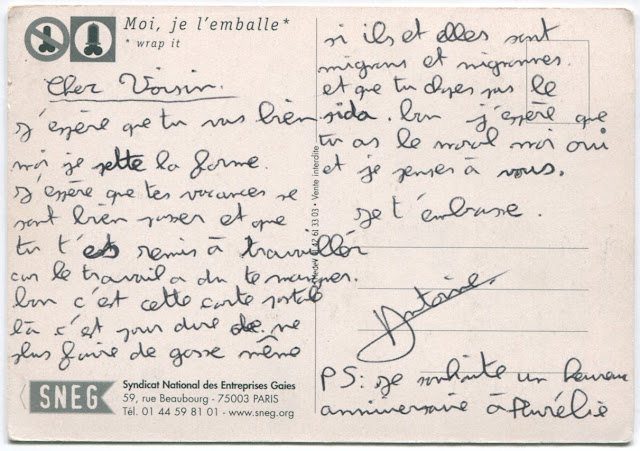 Moi, je l'emballe*
* wrap it
Cher Voisin.
j'espère que tu vas bien
moi je pette la forme.
j'espère que tes vacances se
sont bien passer et que
tu t'es remis à travaillér
car le travail a du te manquer.
bon c'est cette carte postale
là c'est pour dire de ne
plus faire de gosse même
si ils et elles sont
migrons et migronnes.
et que tu chopes pas le
sida. bon j'espère que
tu as le moral moi oui
et je penses à vous.
je t'embrasse.
Antoine.
PS: je souhaite un heureux
anniversaire à Aurélie
42 61 33 03 • Vente interdite
SNEG
Syndicat National des Entreprises Gaies
59, rue Beaubourg - 75003 PARIS
Tél. 01 44 59 81 01 - www.sneg.org